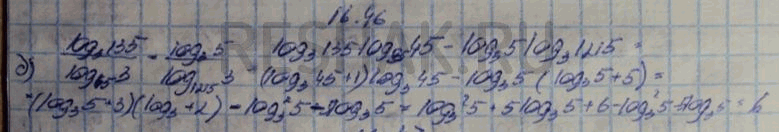 16.46
б) log₃135 / log₆₅3 - log₃5 / log₁₂₁₅3 log₃135 log₃45 - log₃5 log₃1215 =
= (log₃45+1) log₃45 - log₃5 (log₃5+5) =
=(log₃5+3)(log₃+2) - log₃²5 - 5log₃5 = log₃²5 + 5log₃5 + 6 - log₃²5 - 5log₃5 = 6
RESHAK.RU